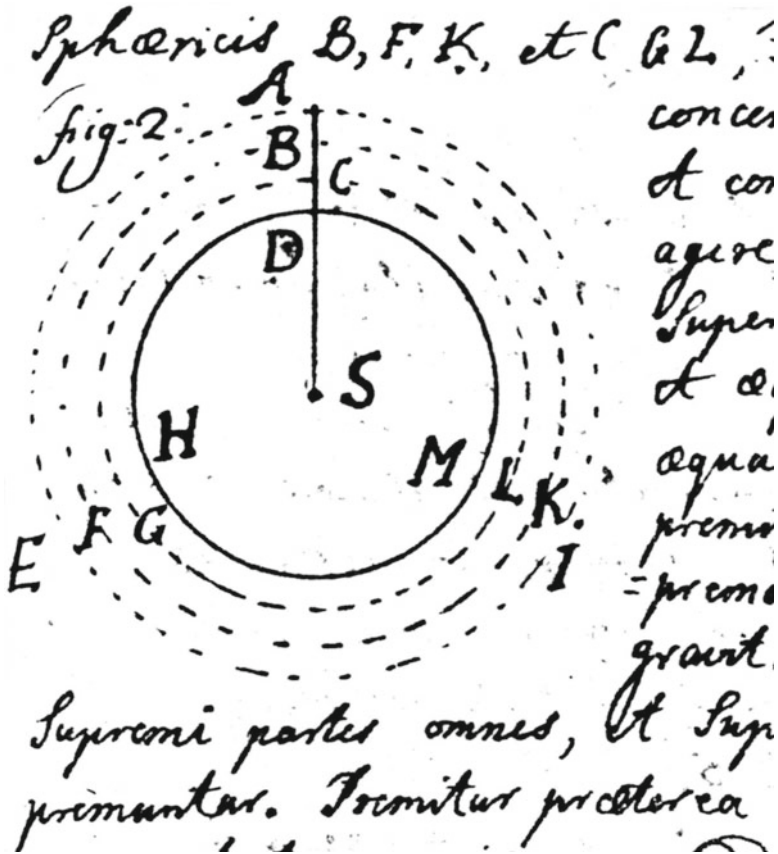 Sphæricis B, F, K, et C G L,
fig: 2.
A
B
C
D
S
H
M
L
K.
F
G
E
I
concen
et con
agere
Super
et æq
æqua
premun
=prem
gravit.
Supremi partes omnes, et Sup
premuntur. Premitur præterea